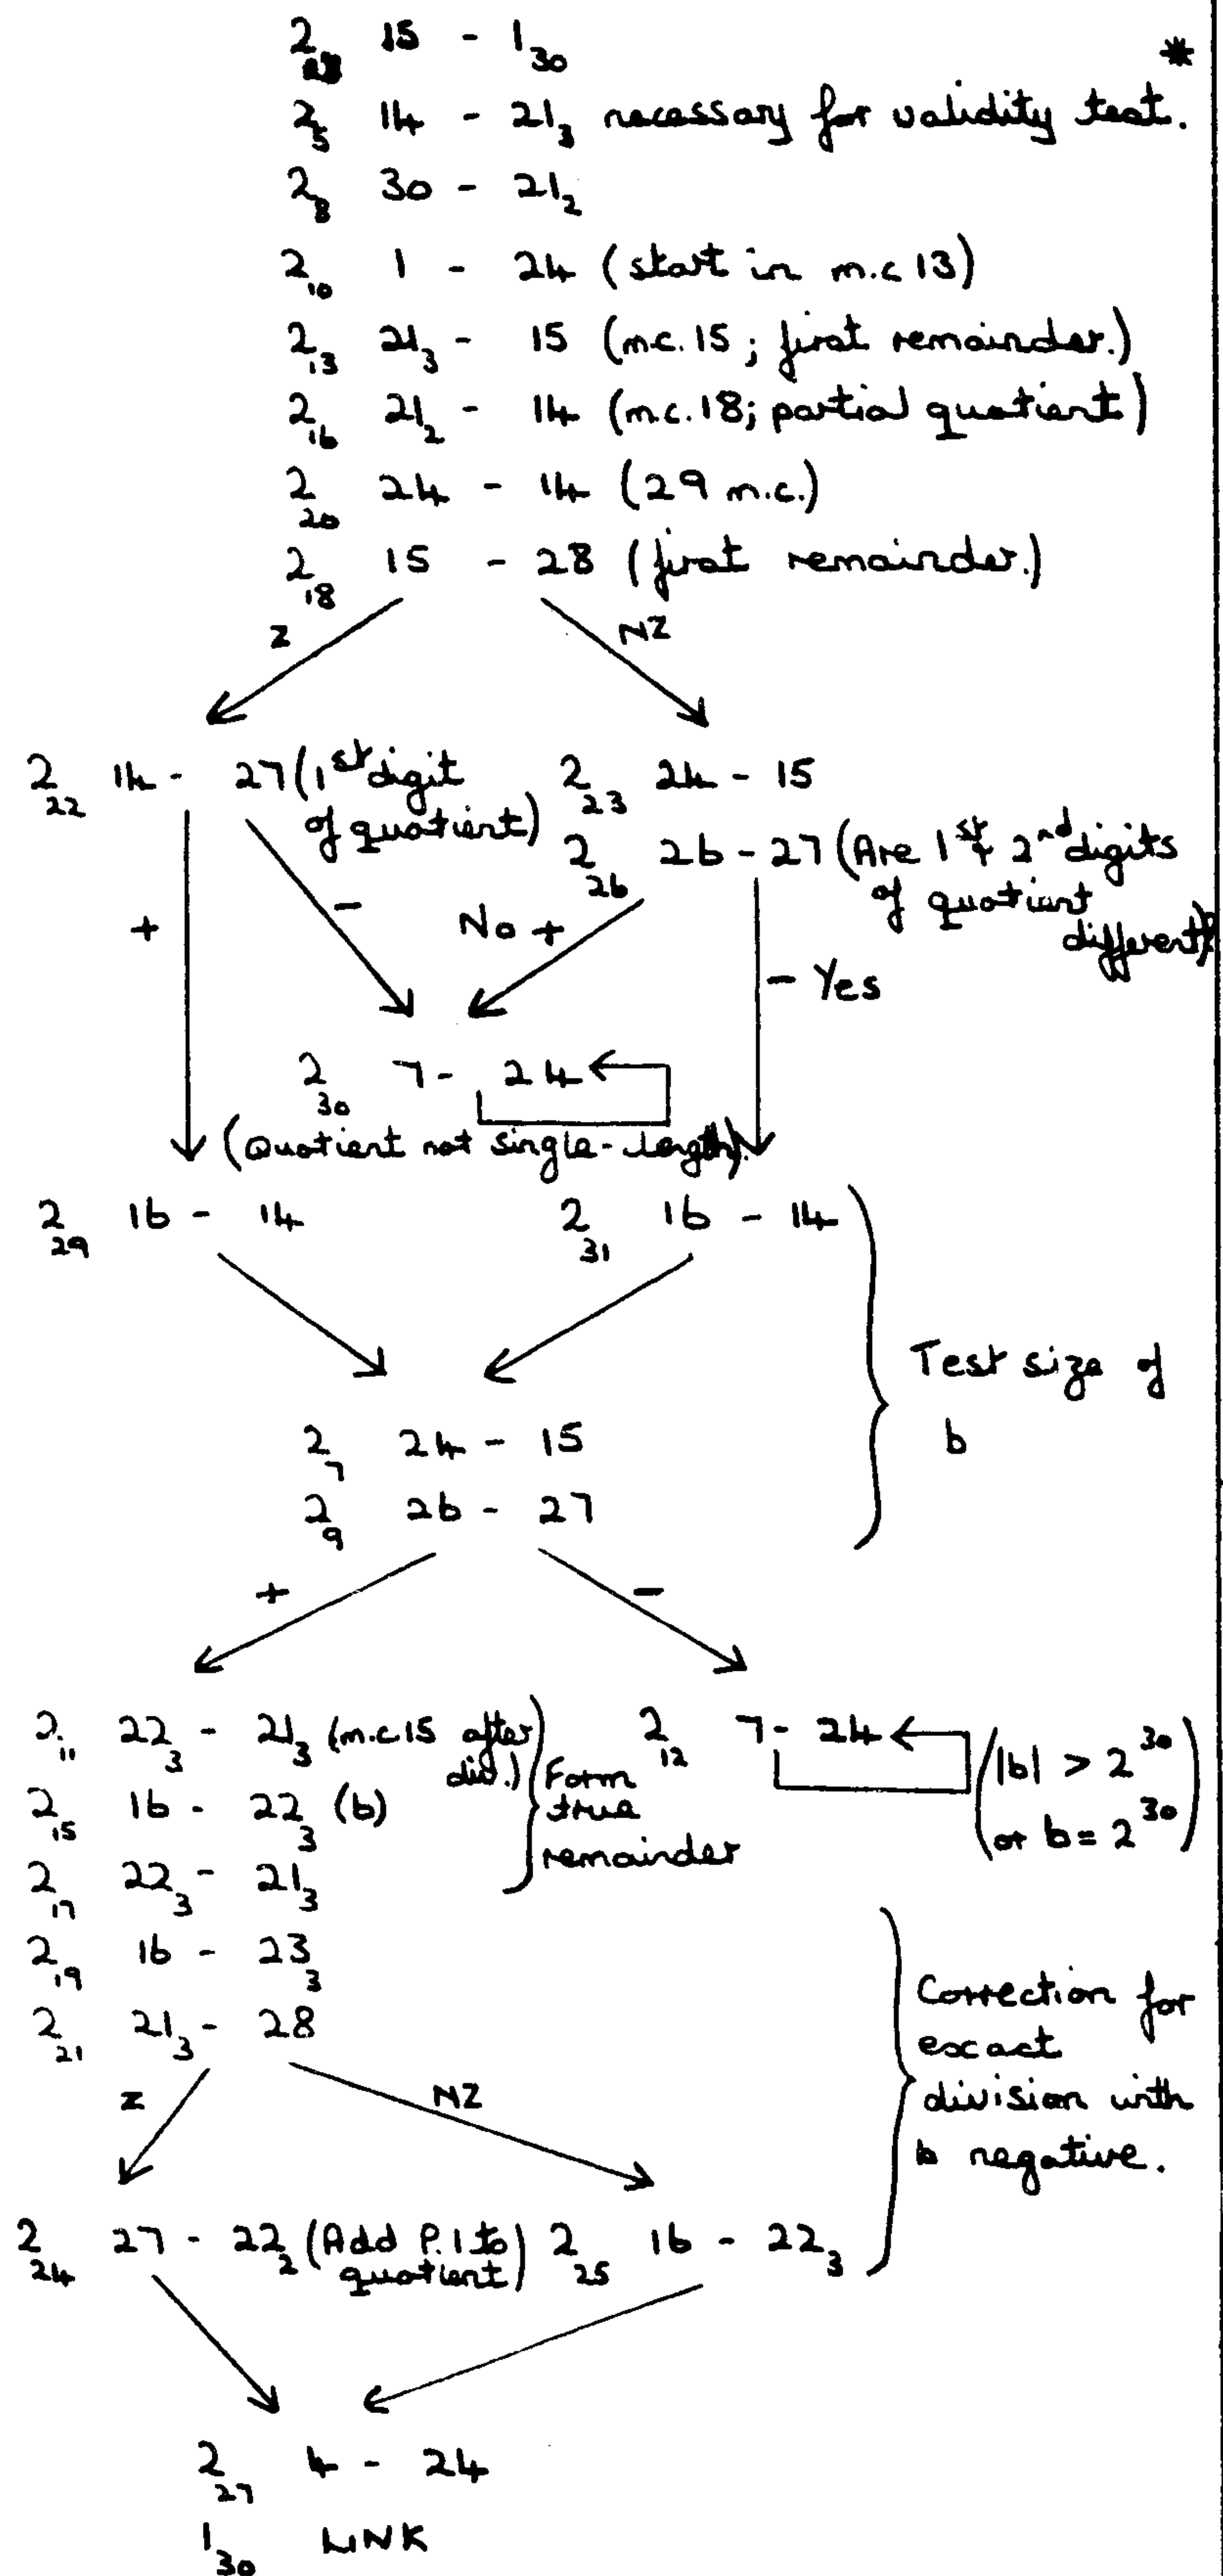 2 15 - 1₃₀
*
2₅ 14 - 21₃ necessary for validity test.
2₈ 30 - 21₂
2₁₀ 1 - 24 (start in m.c 13)
2₁₃ 21₃ - 15 (m.c. 15; first remainder.)
2₁₆ 21₂ - 14 (m.c. 18; partial quotient)
2₂₀ 24 - 14 (29 m.c.)
2₁₈ 15 - 28 (first remainder.)
Z NZ
2₂₂ 14 - 27 (1st digit of quotient) 2₂₃ 24 - 15
2₂₆ 26 - 27 (Are 1st & 2nd digits of quotient different)?
+ - No + - Yes
2₃₀ 7 - 24
(Quotient not single-length).
2₂₉ 16 - 14 2₃₁ 16 - 14
Test size of
b
2₇ 24 - 15
2₉ 26 - 27
+ -
2₁₁ 22₃ - 21₃ (m.c 15 after div.) 2₁₂ 7 - 24 (|b| > 2³⁰
or b = 2³⁰)
2₁₅ 16 - 22₃ (b) Form true remainder
2₁₇ 22₃ - 21₃
2₁₉ 16 - 23₃
2₂₁ 21₃ - 28
Correction for
exact
division with
b negative.
Z NZ
2₂₄ 27 - 22₂ (Add P.1 to quotient) 2₂₅ 16 - 22₃
2₂₇ 4 - 24
1₃₀ LINK